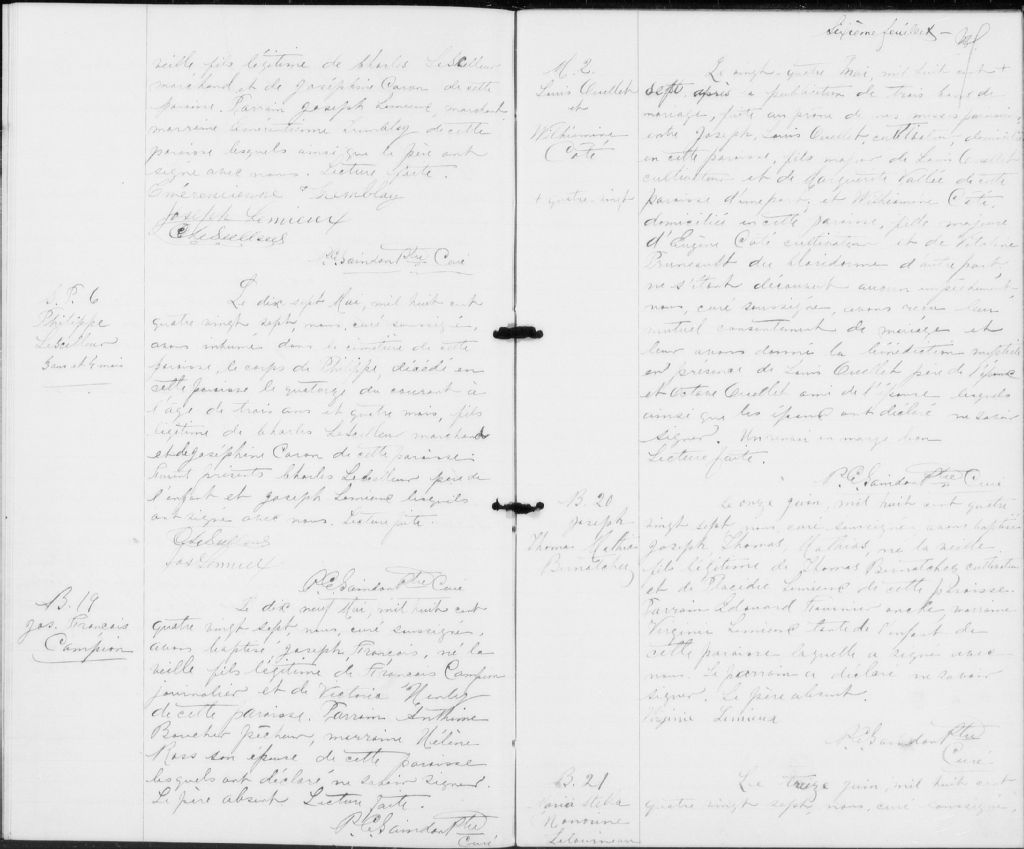 veille fils légitime de Charles LeSeilleur
marchand et de Joséphine Caron de cette
paroisse. Parrain Joseph Lemieux, marchand
marraine Emérentienne Tremblay de cette
paroisse lesquels ainsi que le père ont
signé avec nous. Lecture faite.
Emérencienne Tremblay
Joseph Lemieux
P. C. Saindon Ptre Curé
S. P. 6
Philippe
LeSeilleur
3 ans et 4 mois
Le dix sept Mai, mil huit cent
quatre vingt sept, nous, curé soussigné,
avons inhumé dans le cimetière de cette
paroisse, le corps de Philippe, décédé en
cette paroisse le quatorze du courant à
l'âge de trois ans et quatre mois, fils
légitime de Charles LeSeilleur marchand
et de Joséphine Caron de cette paroisse.
Furent présents Charles LeSeilleur père de
l'enfant et Joseph Lemieux lesquels
ont signé avec nous. Lecture faite.
Jos Lemieux
P. C. Saindon Ptre Curé
B. 19
Jos. François
Campion
Le dix neuf Mai, mil huit cent
quatre vingt sept, nous, curé soussigné,
avons baptisé Joseph, François, né la
veille fils légitime de François Campion
journalier et de Victoria
de cette paroisse. Parrain Anthime
Boucher pêcheur, marraine Hélène
Ross son épouse de cette paroisse
lesquels ont déclaré ne savoir signer.
Le père absent. Lecture faite.
P. C. Saindon Ptre
Curé
Sixième feuillet
M. 2.
Louis Ouellet
et
Wilhiemine
Coté
+ quatre vingt
Le vingt-quatre Mai, mil huit cent +
sept, après la publication de trois bans de
mariage, faite au prône de nos messes paroissiales
entre Joseph, Louis Ouellet, cultivateur, domicilié
en cette paroisse, fils majeur de Louis Ouellet
cultivateur et de Marguerite Vallée de cette
paroisse d'une part, et Wilhiemine Coté,
domiciliée en cette paroisse, fille majeure
d'Eugène Coté cultivateur et de Vitaline
Pruneault du Cloridorme d'autre part,
ne s'étant découvert aucun empêchement
nous, curé soussigné, avons reçu leur
mutuel consentement de mariage et
leur avons donné la bénédiction nuptiale
en présence de Louis Ouellet père de l'époux
et Octave Ouellet ami de l'épouse lesquels
ainsi que les époux ont déclaré ne savoir
signer. Un renvoi en marge bon
Lecture faite.
P. C. Saindon Ptre Curé
B. 20
Joseph
Thomas Mathias
Bernatchez
Le onze juin, mil huit cent quatre
vingt sept, nous, curé, soussigné avons baptisé
Joseph, Thomas, Mathias, né la veille
fils légitime de Thomas Bernatchez cultivateur
et de Placidie Lemieux de cette paroisse.
Parrain Edouard Fournier oncle, marraine
Virginie Lemieux tante de l'enfant de
cette paroisse laquelle a signé avec
nous. Le parrain a déclaré ne savoir
signer. Le père absent.
Virginie Lemieux
P. C. Saindon Ptre
Curé
B. 21
Maria Stella
Letourneau
Le treize juin, mil huit cent
quatre vingt sept, nous, curé soussigné,